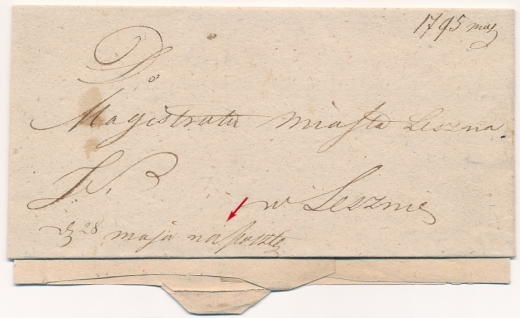 1795 maj
Do
Magistratu miasta Leszna.
w Lesznie
28 maja na pocztę